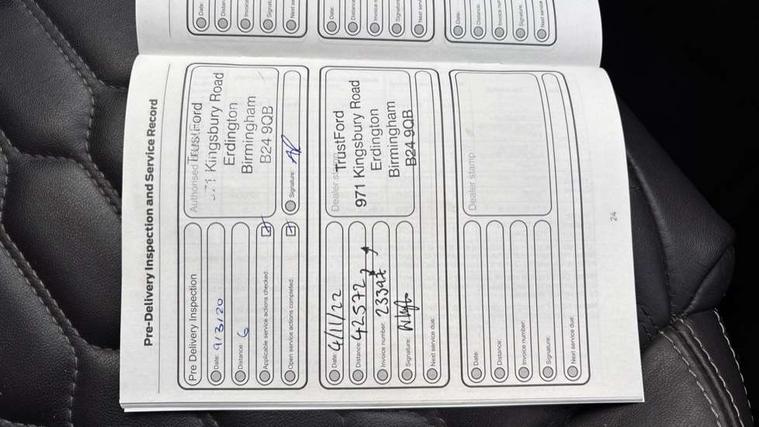 Pre-Delivery Inspection and Service Record
Pre Delivery Inspection
Date: 9/3/20
Distance: 6
Applicable service actions checked:
Open service actions completed:
Authorised TrustFord
971 Kingsbury Road
Erdington
Birmingham
B24 9QB
Signature:
Date: 4/11/22
Distance: 42572
Invoice number:
Signature:
Next service due:
Dealer stamp
TrustFord
971 Kingsbury Road
Erdington
Birmingham
B24 9QB
Date:
Distance:
Invoice number:
Signature:
Next service due:
Dealer stamp
24
Date:
Distance:
Invoice number:
Signature:
Next service due: